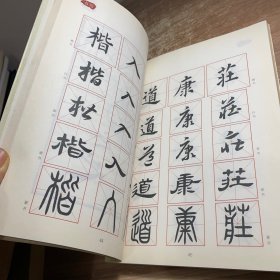 莊莊莊莊莊
康康康康康
道道道道道
入入入入入
楷楷楷楷楷